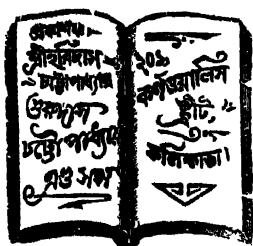 প্রকাশক।
শ্রীহরিদাস
চট্টোপাধ্যায়
গুরুদাস
চট্টোপাধ্যায়
এণ্ড সন্স
২০১
কর্ণওয়ালিস
ষ্ট্রীট,
কলিকাতা।